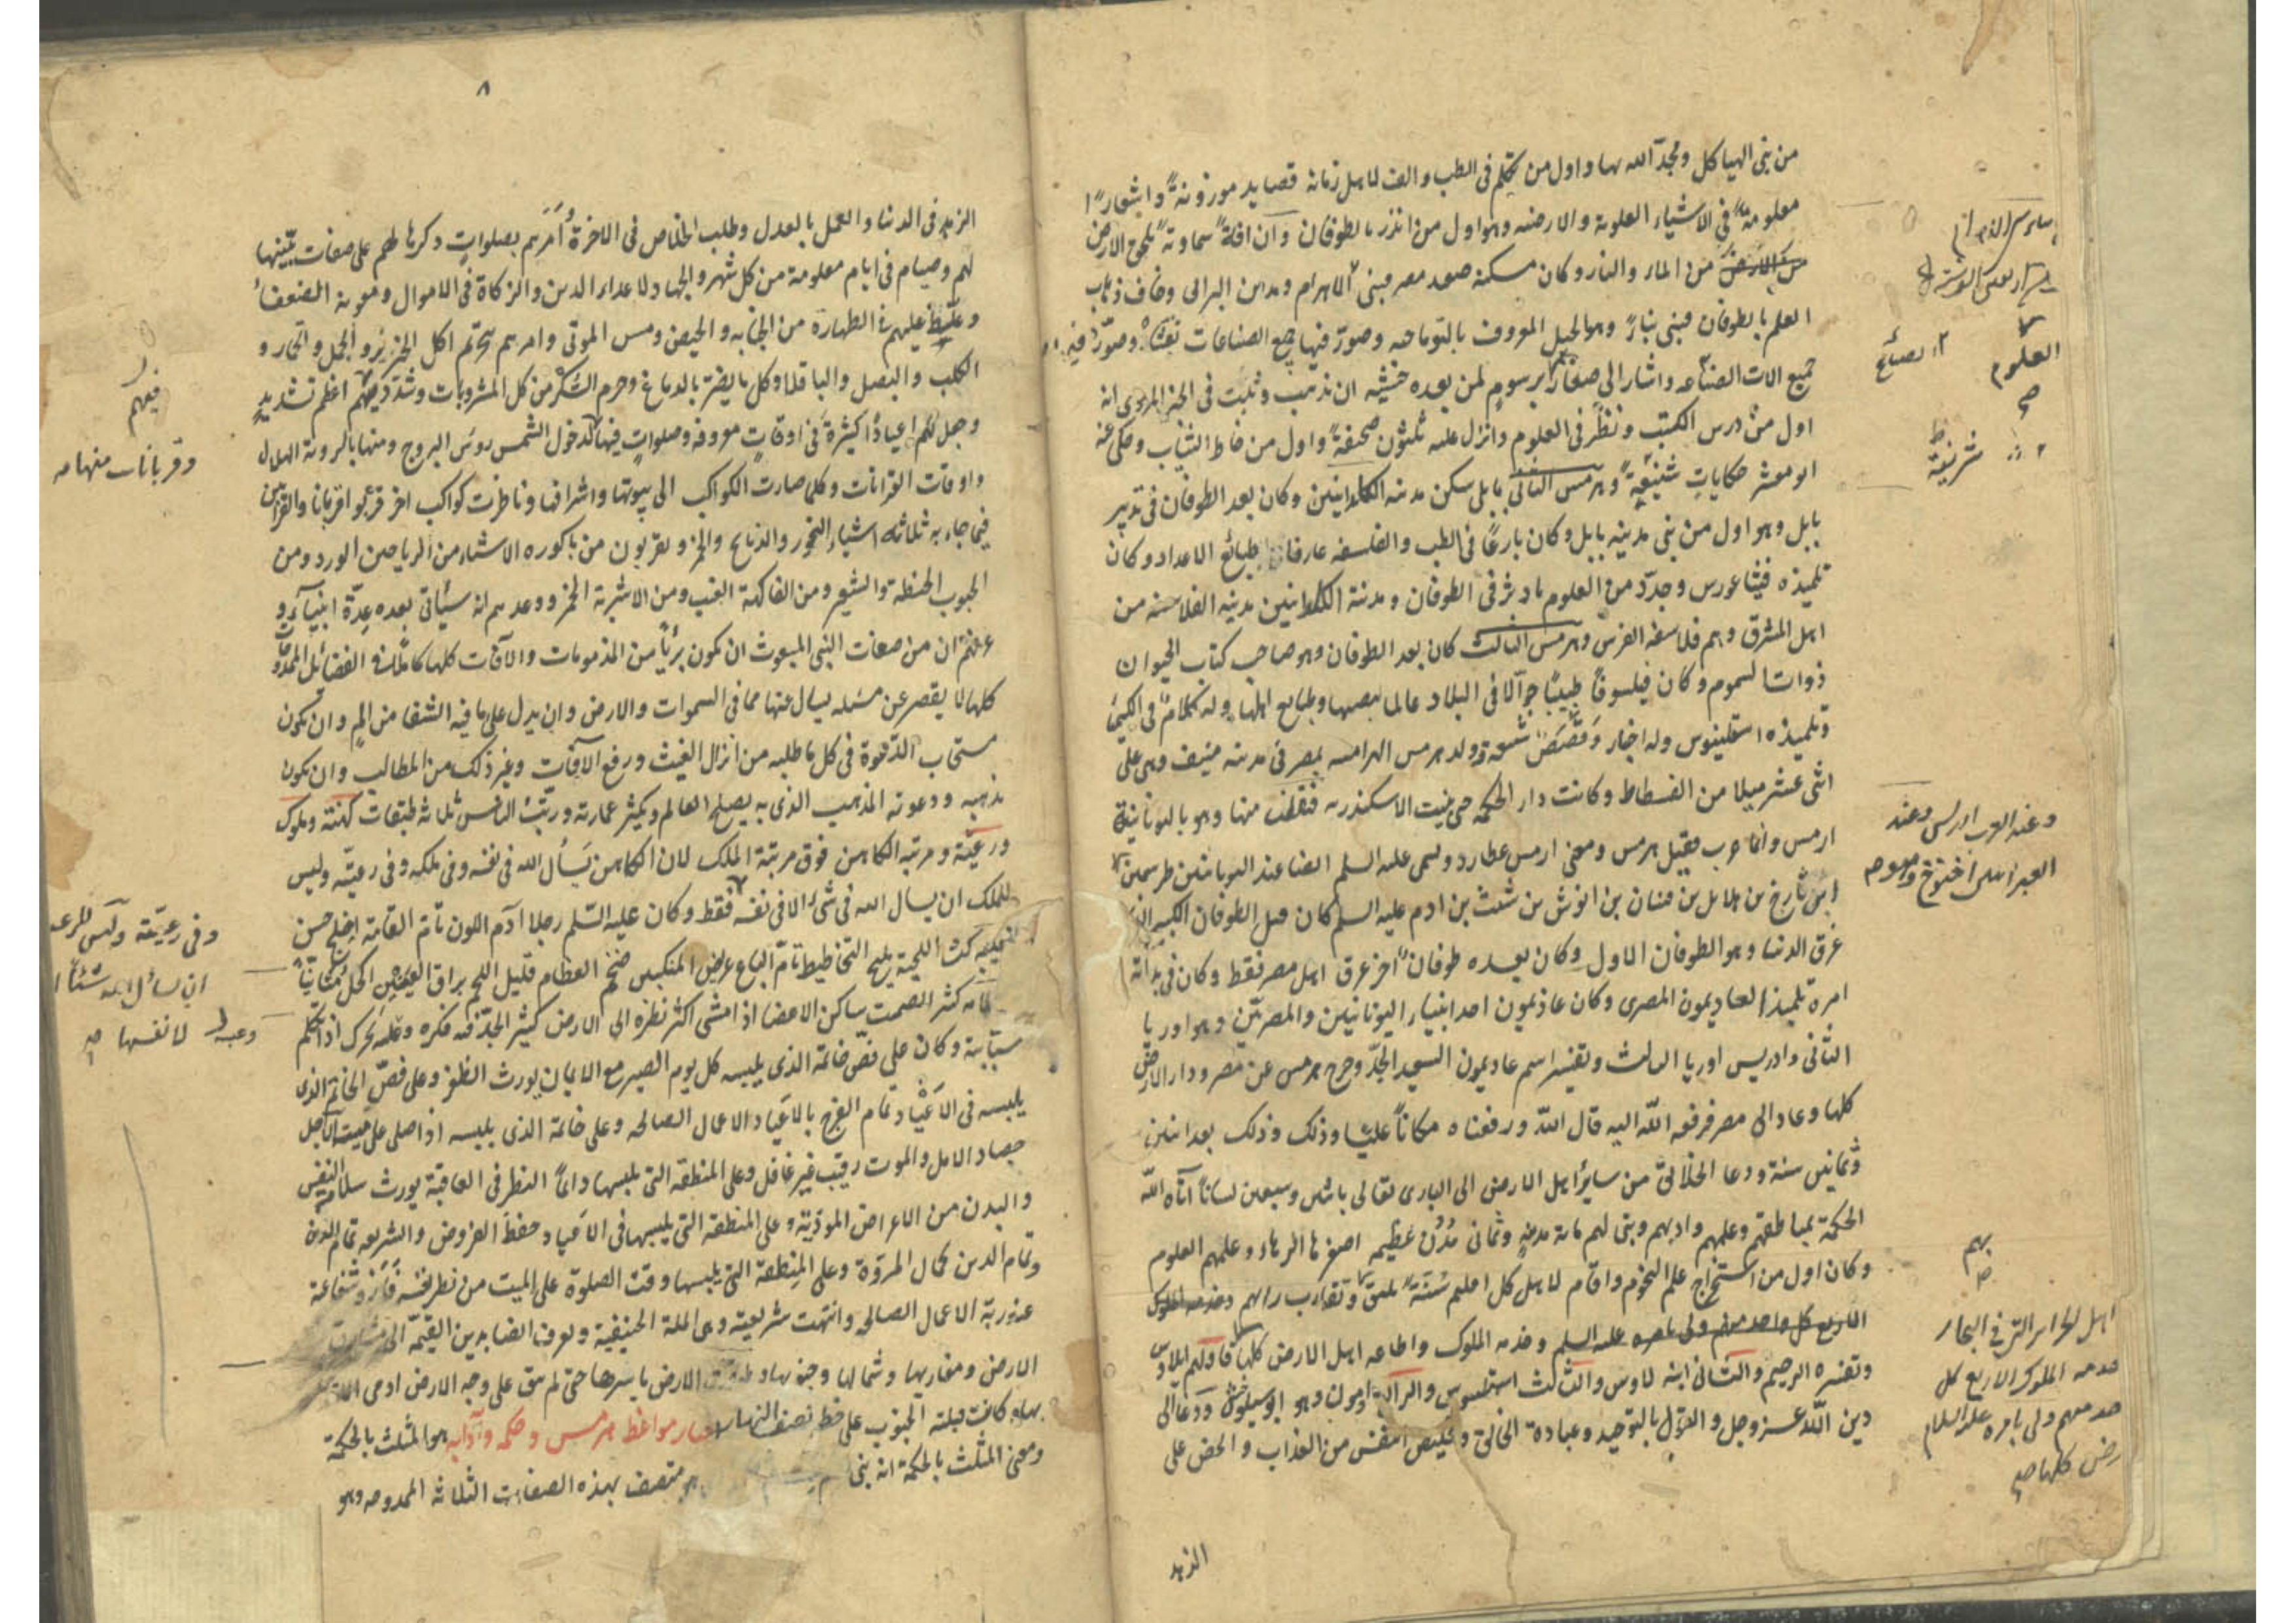 من بنى الهياكل ومجدّ الله بها واول من تكلم فى الطب والف لاهل زمانه قصايد موزونة واشعارًا
معلومة فى الاشياء العلوية والارضيه وهو اول من انذر بالطوفان وان افة سماوية تلحق الارض
من الماء والنار وكان مسكنه صعيد مصر فبنى الاهرام ومداين البرابى وخاف ذهاب
العلم بالطوفان فبنى وهو الجبل المعروف وصوّر فيها جميع الصناعات وصوّر فيه
جميع الات الصناعه واشار الى صفات برسوم لمن بعده خشية ان يذهب وثبت فى الخبر المروى انه
اول من درس الكتب ونظر فى العلوم وانزل عليه ثلثون صحيفة واول من خاط الثياب وحكى عنه
ابو معشر حكايات شنيعة وهرمس الثانى بابلى سكن مدينة الكلدانيين وكان بعد الطوفان فى تدبير
بابل وهو اول من بنى مدينة بابل وكان بارعًا فى الطب والفلسفه عارفا بطبائع الاعداد وكان
تلميذه فيثاغورس وجدّد من العلوم ما دثر فى الطوفان ومدينة الكلدانيين مدينة الفلاسفه من
اهل المشرق وهم فلاسفة الفرس وهرمس الثالث كان بعد الطوفان وهو صاحب كتاب الحيوان
ذوات السموم وكان فيلسوفًا طبيبًا جوّالا فى البلاد عالما بنصبها وطبايع اهلها وله كلام فى الكيميا
وتلميذه اسقلينوس وله اخبار وقصص وولد هرمس الهرامسه بمصر فى مدينة منيف وهى على
اثنى عشر ميلا من الفسطاط وكانت دار الحكمه حتى بنيت الاسكندريه فنقلت منها وهو باليونانية
ارمس وانما عرب فقيل هرمس ومعنى ارمس عطارد ويسمى عليه السلم ايضا عند اليونانيين طرسمين
ابن يارخ بن مهلايل بن قينان بن انوش بن شيث بن ادم عليه السلم كان قبل الطوفان الكبير الذى
غرق الدنيا وهو الطوفان الاول وكان بعده طوفان اخر غرق اهل مصر فقط وكان فى بداية
امره تلميذا لغاديمون المصرى وكان غاذيمون احد انبياء اليونانيين والمصريّين وهو اوريا
الثانى وادريس اوريا الثالث وتفسير اسم غاديمون السعيد الجدّ وخرج هرمس عن مصر ودار الارض
كلها وعاد الى مصر فرفعه الله اليه قال الله ورفعناه مكانًا عليًا وذلك بعد اثنين
وثمانين سنة ودعا الخلايق من ساير اهل الارض الى البارى تعالى باثنين وسبعين لسانًا آتاه الله
الحكمة بمناطقهم وعلمهم وادبهم وبنى لهم مائة مدينة وثمانى مدن عظيمة اصغرها الرهاء وعلمهم العلوم
وكان اول من استخرج علم النجوم واقام لاهل كل اقليم سنّة تليق وتقارب رايهم وخدمه الملوك
الاربع كل واحد منهم ولى بامره عليه السلم وخدمه الملوك واطاعه اهل الارض كلها فاولهم ايلاوس
وتفسيره الرحيم والثانى ابنه لاوس والثالث اسقليبوس والرابع امون وهو ابوسيلوخس ودعا الى
دين الله عز وجل والقول بالتوحيد وعبادة الخالق وتخليص النفس من العذاب والحض على
الزهد
العلوم
الصنايع
شريفة
وعند العرب ادريس وعند
العبرانيين اخنوخ وهو
بهم
اهل الجزاير التى فى البحار
خدمه الملوك الاربع كل
واحد منهم ولى بامره عليه السلام
رض كلها صح
٨
الزهد فى الدنيا والعمل بالعدل وطلب الخلاص فى الاخرة وأمرهم بصلوات ذكرها لهم على صفات بيّنها
لهم وصيام فى ايام معلومة من كل شهر والجهاد لاعداء الدين والزكاة فى الاموال ومعونة الضعفاء
وغلّظ عليهم فى الطهارة من الجنابه والحيض ومس الموتى وامرهم بتحريم اكل الخنزير والجمل والحمار و
الكلب والبصل والباقلا وكل ما يضر بالدماغ وحرم السّكر من كل المشروبات وشدّد فيهم اعظم تشديد
وجعل لهم اعيادًا كثيرة فى اوقات معروفه وصلوات فيها لدخول الشمس روس البروج ومنها لروية الهلال
واوقات القرانات وكلما صارت الكواكب الى بيوتها واشرافها وناظرت كواكب اخر قربوا قربانا والقرابين
فيما جاء به ثلاثة اشياء البخور والذبايح والخمر ويقربون من باكوره الاشياء من الرياحين الورد ومن
الحبوب الحنطة والشعير ومن الفاكهة العنب ومن الاشربة الخمر ووعدهم انه سيأتى بعده عدّة انبياء و
عرّفهم ان من صفات النبى المبعوث ان يكون بريًا من المذمومات والآفات كلها كاملا فى الفضائل الممدوحات
كلها لا يقصر عن مسئله يسال عنها مما فى السموات والارض وان يدل على ما فيه الشفا من الم وان يكون
مستجاب الدعوة فى كل ما طلبه من انزال الغيث ورفع الآفات وغير ذلك من المطالب وان يكون
مذهبه ودعوته المذهب الذى به يصلح العالم ويكثر عمارته ورتّب الناس ثلاثة طبقات كهنة وملوك
ورعيّة ومرتبة الكاهن فوق مرتبة الملك لان الكاهن يسأل الله فى نفسه وفى ملكه وفى رعيته وليس
للملك ان يسال الله فى شئ الا فى نفسه فقط وكان عليه السّلم رجلا آدم اللون تام القامة اجلح حسن
الوجه كث اللحية مليح التخاطيط تام الباع عريض المنكبين ضخم العظام قليل اللحم براق العينين اكحل متأنيًا
كلامه كثير الصمت ساكن الاعضا اذا مشى اكثر نظره الى الارض كثير الجدّ فيه فكره وعبسه يحرك اذا تكلم
سبّابته وكان على فصّ خاتمه الذى يلبسه كل يوم الصبر مع الايمان يورث الظفر وعلى فصّ الخاتم الذى
يلبسه فى الاعياد تمام الفرح بالاعياد الاعمال الصالحه وعلى خاتمه الذى يلبسه اذا صلى على ميت الاجل
حصاد الامل والموت رقيب غير غافل وعلى المنطقه التى يلبسها دايمًا النظر فى العاقبة يورث سلامة النفس
والبدن من الاعراض الموذية وعلى المنطقه التى يلبسها فى الاعياد حفظ الفروض والشريعه تمام الدين
وتمام الدين كمال المروّة وعلى المنطقة التى يلبسها وقت الصلوة على الميت من نظر لنفسه فاز وشفاعته
عند ربه الاعمال الصالحه وانتهت شريعته وهى الملة الحنيفية وتعرف ايضا بدين القيمة الى مشارق
الارض ومغاربها وشمالها وجنوبها وطبقت الارض باسرها حتى لم يبق على وجه الارض ادمى الا
بها وكانت قبلته الجنوب على خط نصف النهار اخبار مواعظ هرمس وحكمه وآدابه هو المثلث بالحكمة
ومعنى المثلث بالحكمة انه نبى متصف بهذه الصفات الثلاثه الممدوحه وهو
فيهم
وقربانات منها
وفى رعيّته وليس للرعية
ان يسأل الله شيئا
لانفسها